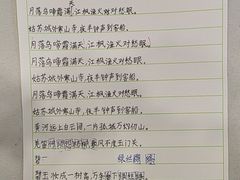 月落乌啼霜满天,江枫渔火对愁眠。
姑苏城外寒山寺,夜半钟声到客船。
月落乌啼霜满天,江枫渔火对愁眠。
月落乌啼霜满天,江枫渔火对愁眠。
姑苏城外寒山寺,夜半钟声到客船。
月落乌啼霜满天,江枫渔火对愁眠。
姑苏城外寒山寺,夜半钟声到客船。
黄河远上白云间,一片孤城万仞山。
羌笛何须怨杨柳,春风不度玉门关。
碧玉妆成一树高,万